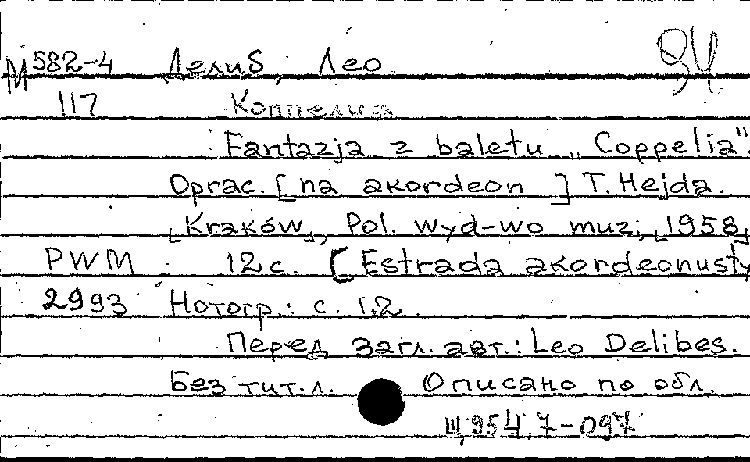 М 582-4 Делиб, Лео
117 Коппелия
Fantazja z baletu „Coppelia".
Oprac. [na akordeon] T. Hejda.
[Kraków], Pol. wyd-wo muz., [1958]
PWM 12 с. [Estrada akordeonusty
2993 Нотогр.: с. 1.2.
Перед загл. авт.: Leo Delibes.
Без тит. л. Описано по обл.
Щ954.7-097